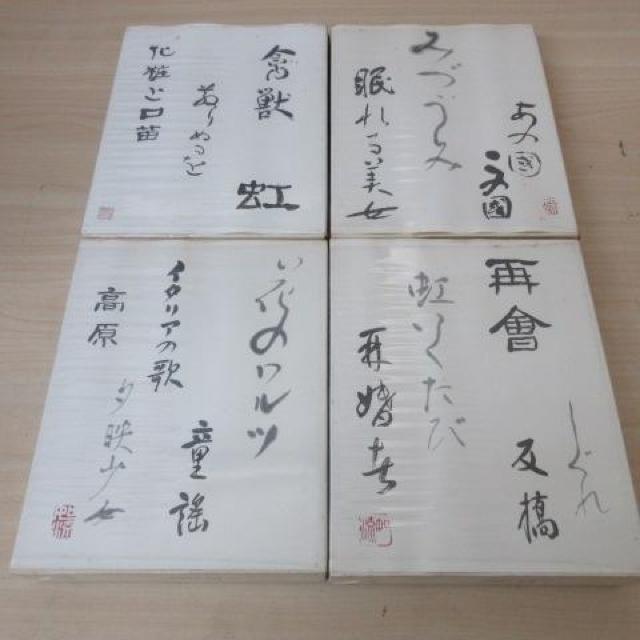 禽獣
虹
化粧と口笛
あの国
この國
みづうみ
眠れる美女
花のワルツ
童謡
イタリアの歌
夕映少女
高原
しぐれ
反橋
再會
虹いくたび
再婚者